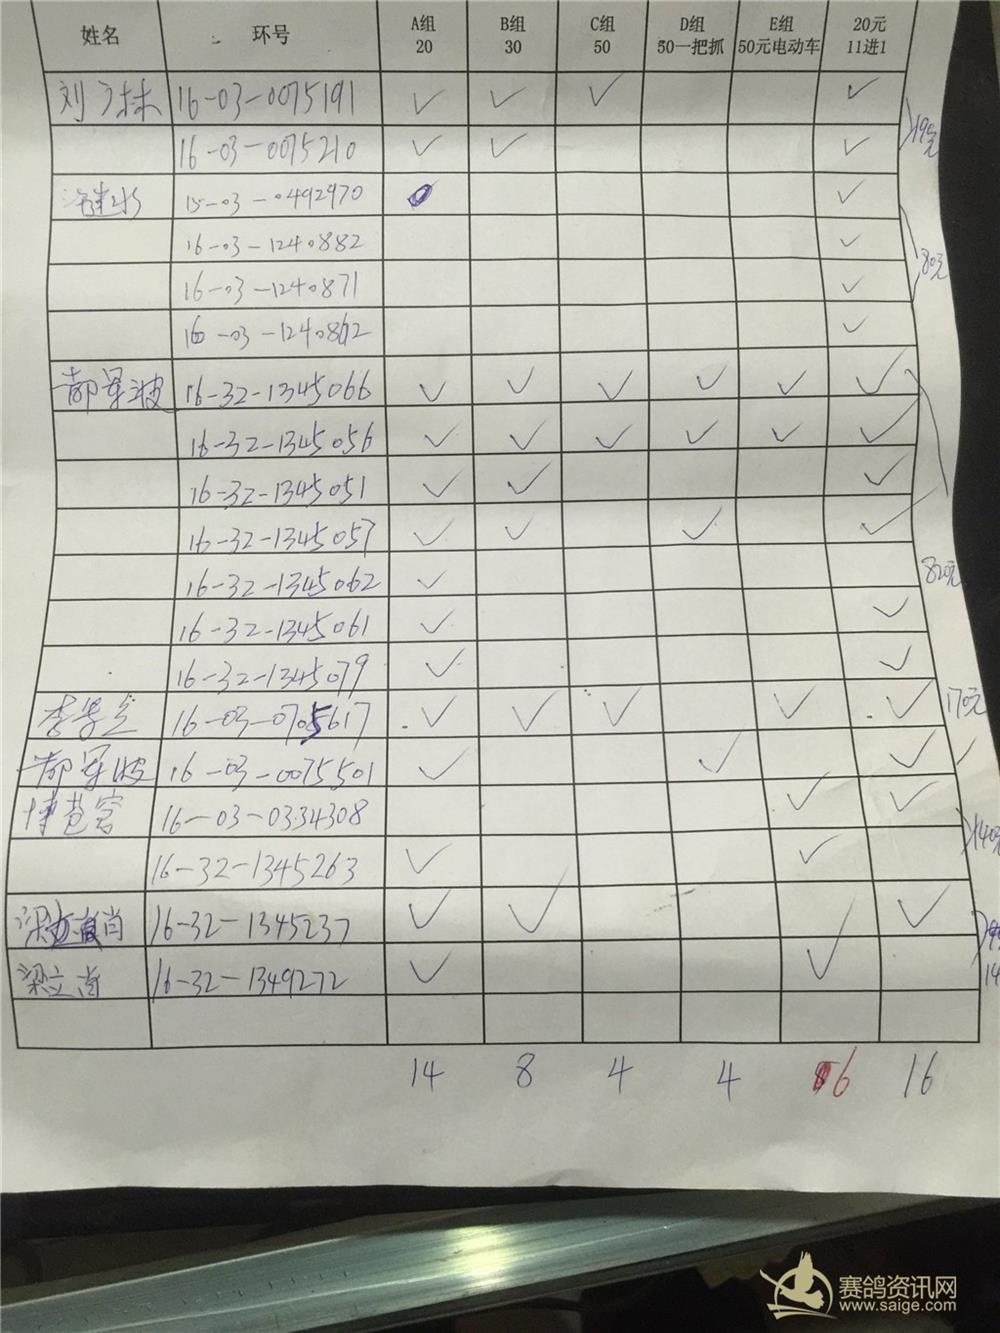 姓名 环号 A组 20 B组 30 C组 50 D组 50一把抓 E组 50元电动车 20元 11进1
刘 林 16-03-0075191 ✓ ✓ ✓ ✓
16-03-0075210 ✓ ✓ ✓
15-03-0492970 ✓
16-03-1240882 ✓ 80元
16-03-1240871 ✓
16-03-1240862 ✓
郝军波 16-32-1345066 ✓ ✓ ✓ ✓ ✓ ✓
16-32-1345056 ✓ ✓ ✓ ✓ ✓ ✓
16-32-1345051 ✓ ✓ ✓
16-32-1345057 ✓ ✓ ✓ ✓
16-32-1345062 ✓ 820元
16-32-1345061 ✓ ✓
16-32-1345079 ✓ ✓
16-03-0705617 ✓ ✓ ✓ ✓ ✓ 170元
郝军波 16-03-0075501 ✓ ✓ ✓
16-03-0334308 ✓ ✓
16-32-1345263 ✓ ✓ 140元
16-32-1345237 ✓ ✓ ✓
梁立肖 16-32-1349272 ✓ ✓
14 8 4 4 6 16
赛鸽资讯网
www.saige.com